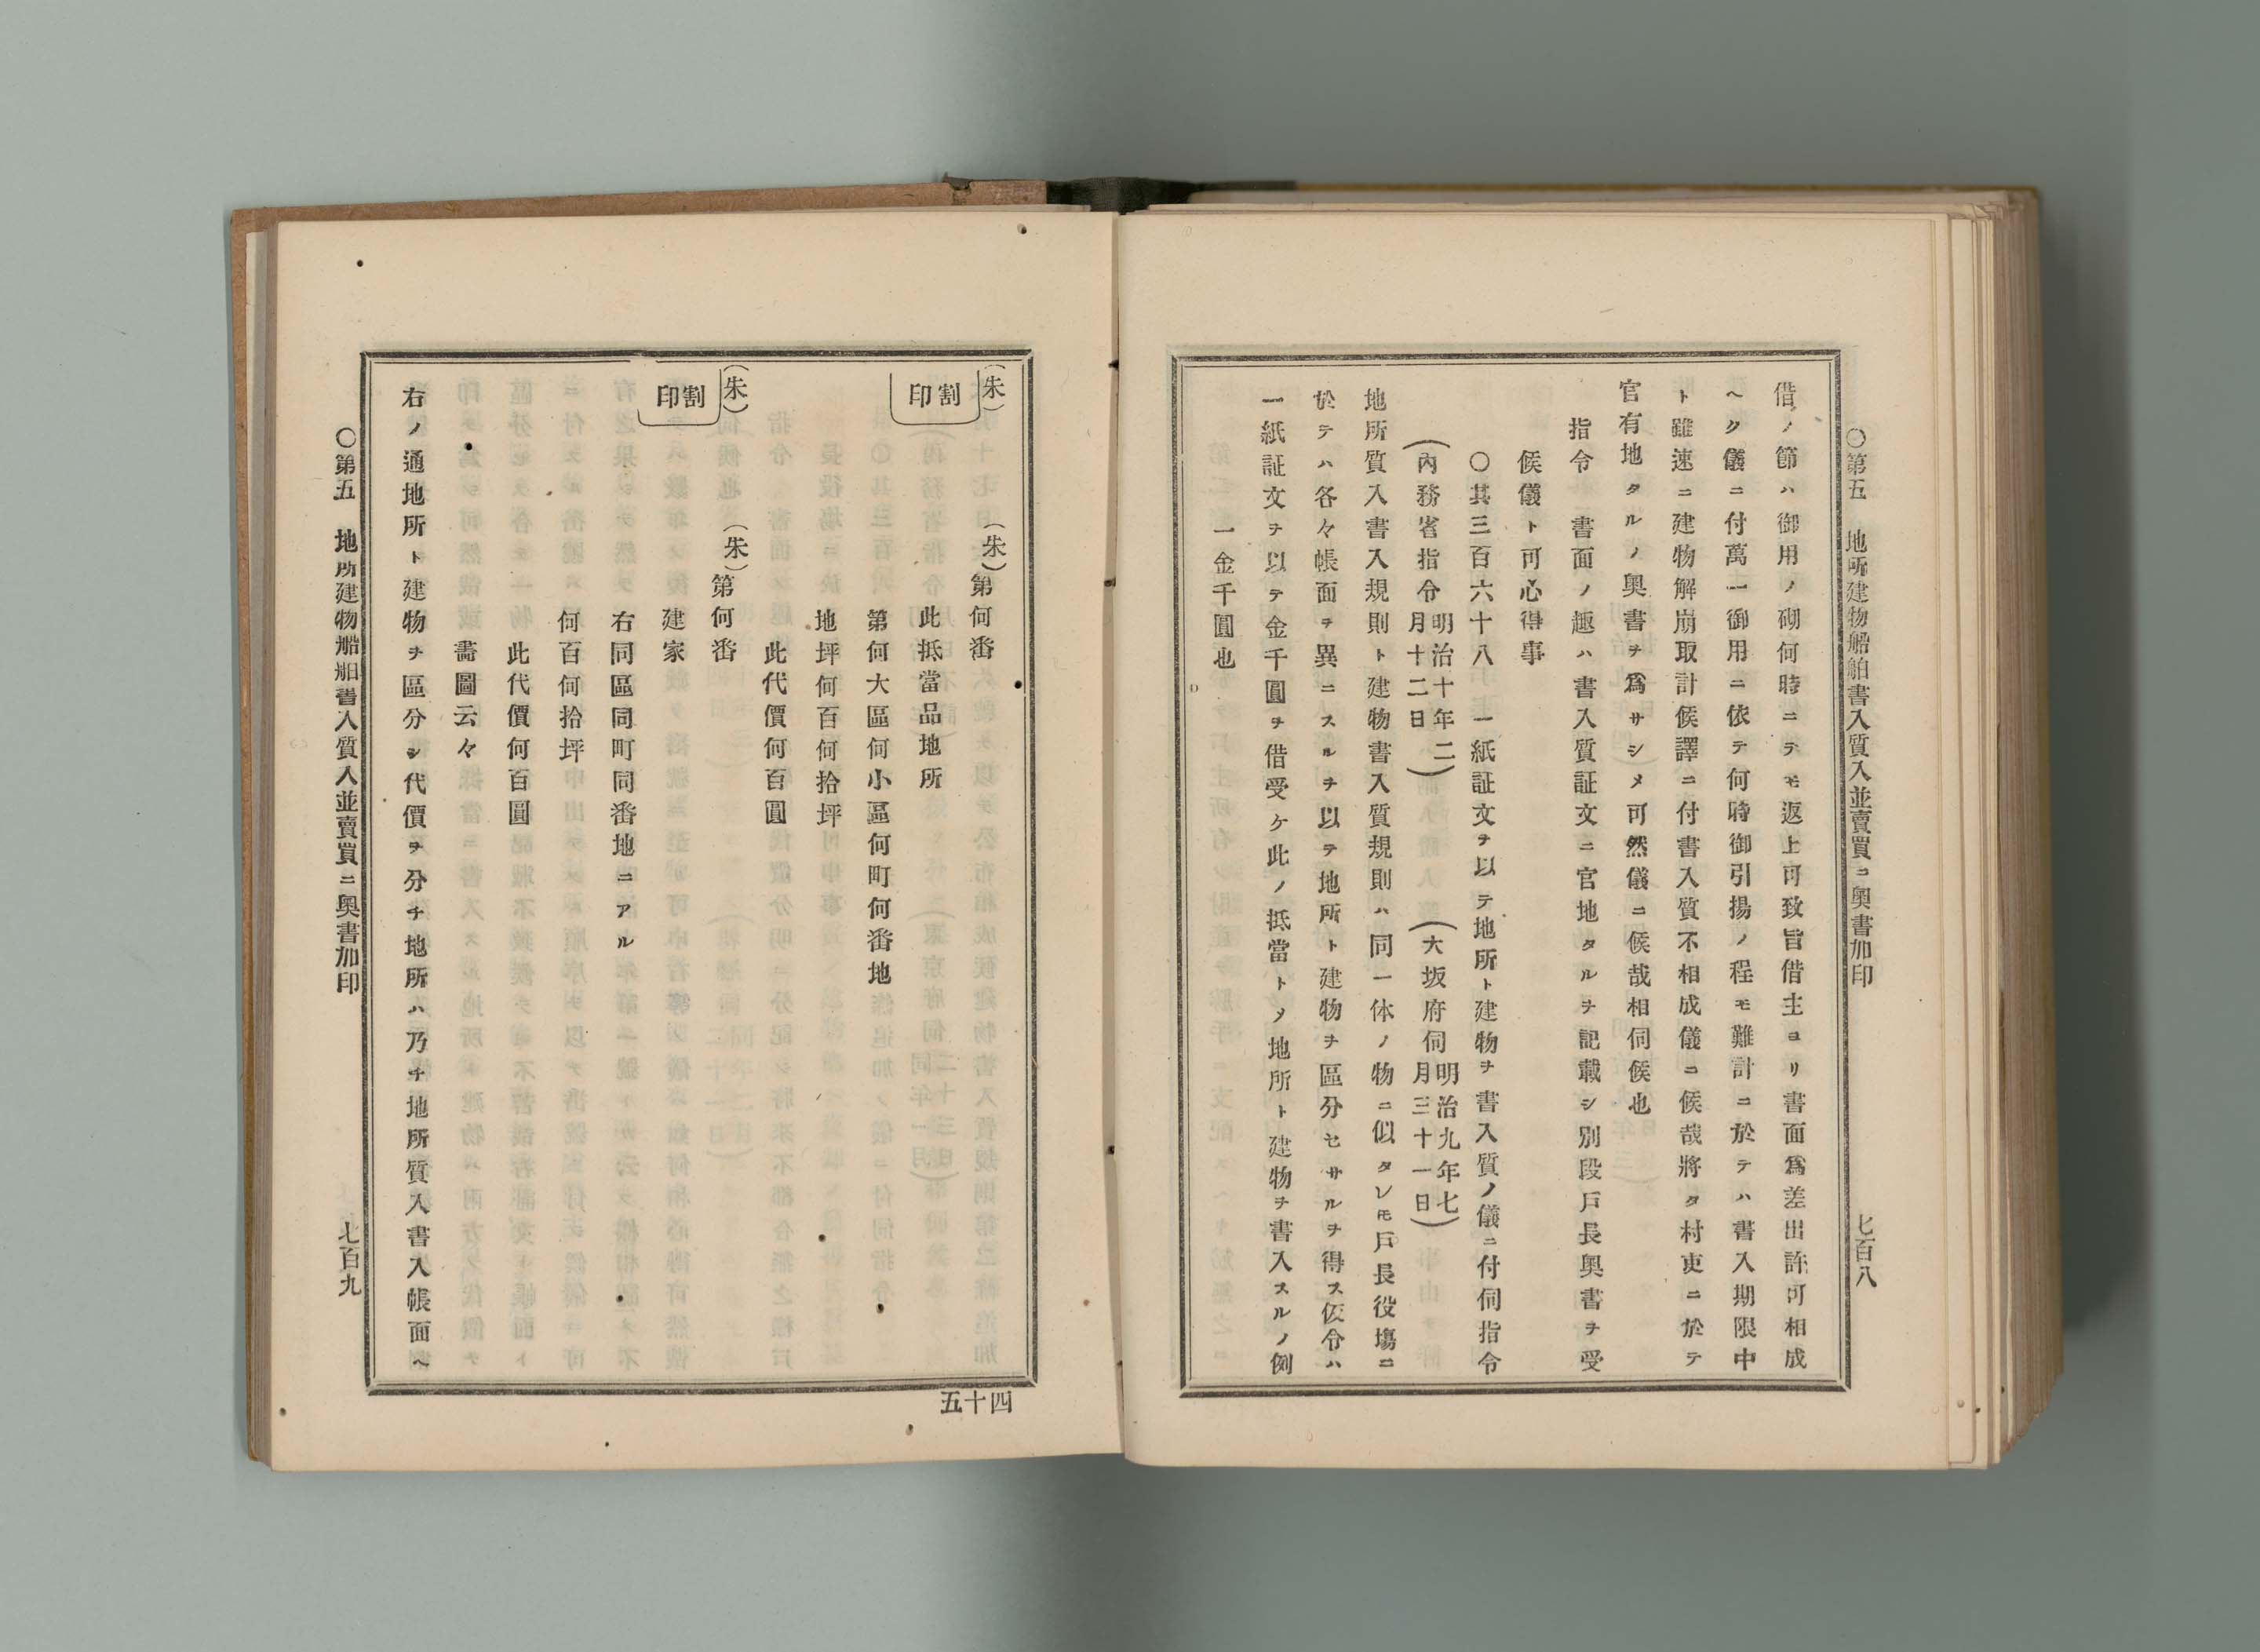 ○第五　地所建物船舶書入質入並賣買ニ奧書加印　七百八
借ノ節ハ御用ノ砌何時ニテモ返上可致旨借主ヨリ書面爲差出許可相成
ヘク儀ニ付萬一御用ニ依テ何時御引揚ノ程モ難計ニ於テハ書入期限中
ト雖速ニ建物解崩取計候譯ニ付書入質不相成儀ニ候哉將タ村吏ニ於テ
官有地タルノ奧書ヲ爲サシメ可然儀ニ候哉相伺候也
指令　書面ノ趣ハ書入質証文ニ官地タルヲ記載シ別段戸長奧書ヲ受
候儀ト可心得事
○其三百六十八　一紙証文ヲ以テ地所ト建物ヲ書入質ノ儀ニ付伺指令
（內務省指令明治十年二月十二日）　（大坂府伺明治九年七月三十一日）
地所質入書入規則ト建物書入質規則ハ同一体ノ物ニ似タレモ戸長役塲ニ
於テハ各々帳面ヲ異ニスルヲ以テ地所ト建物ヲ區分セサルヲ得ス仮令ハ
一紙証文ヲ以テ金千圓ヲ借受ケ此ノ抵當トメ地所ト建物ヲ書入スルノ例
一金千圓也
（朱）割印　（朱）第何番
此抵當品地所
第何大區何小區何町何番地
地坪何百何拾坪
此代價何百圓
（朱）割印　（朱）第何番
建家
右同區同町同番地ニアル
何百何拾坪
此代價何百圓
畵圖云々
右ノ通地所ト建物ヲ區分シ代價ヲ分チ地所ハ乃チ地所質入書入帳面ヘ
○第五　地所建物船舶書入質入並賣買ニ奧書加印　七百九
四十五